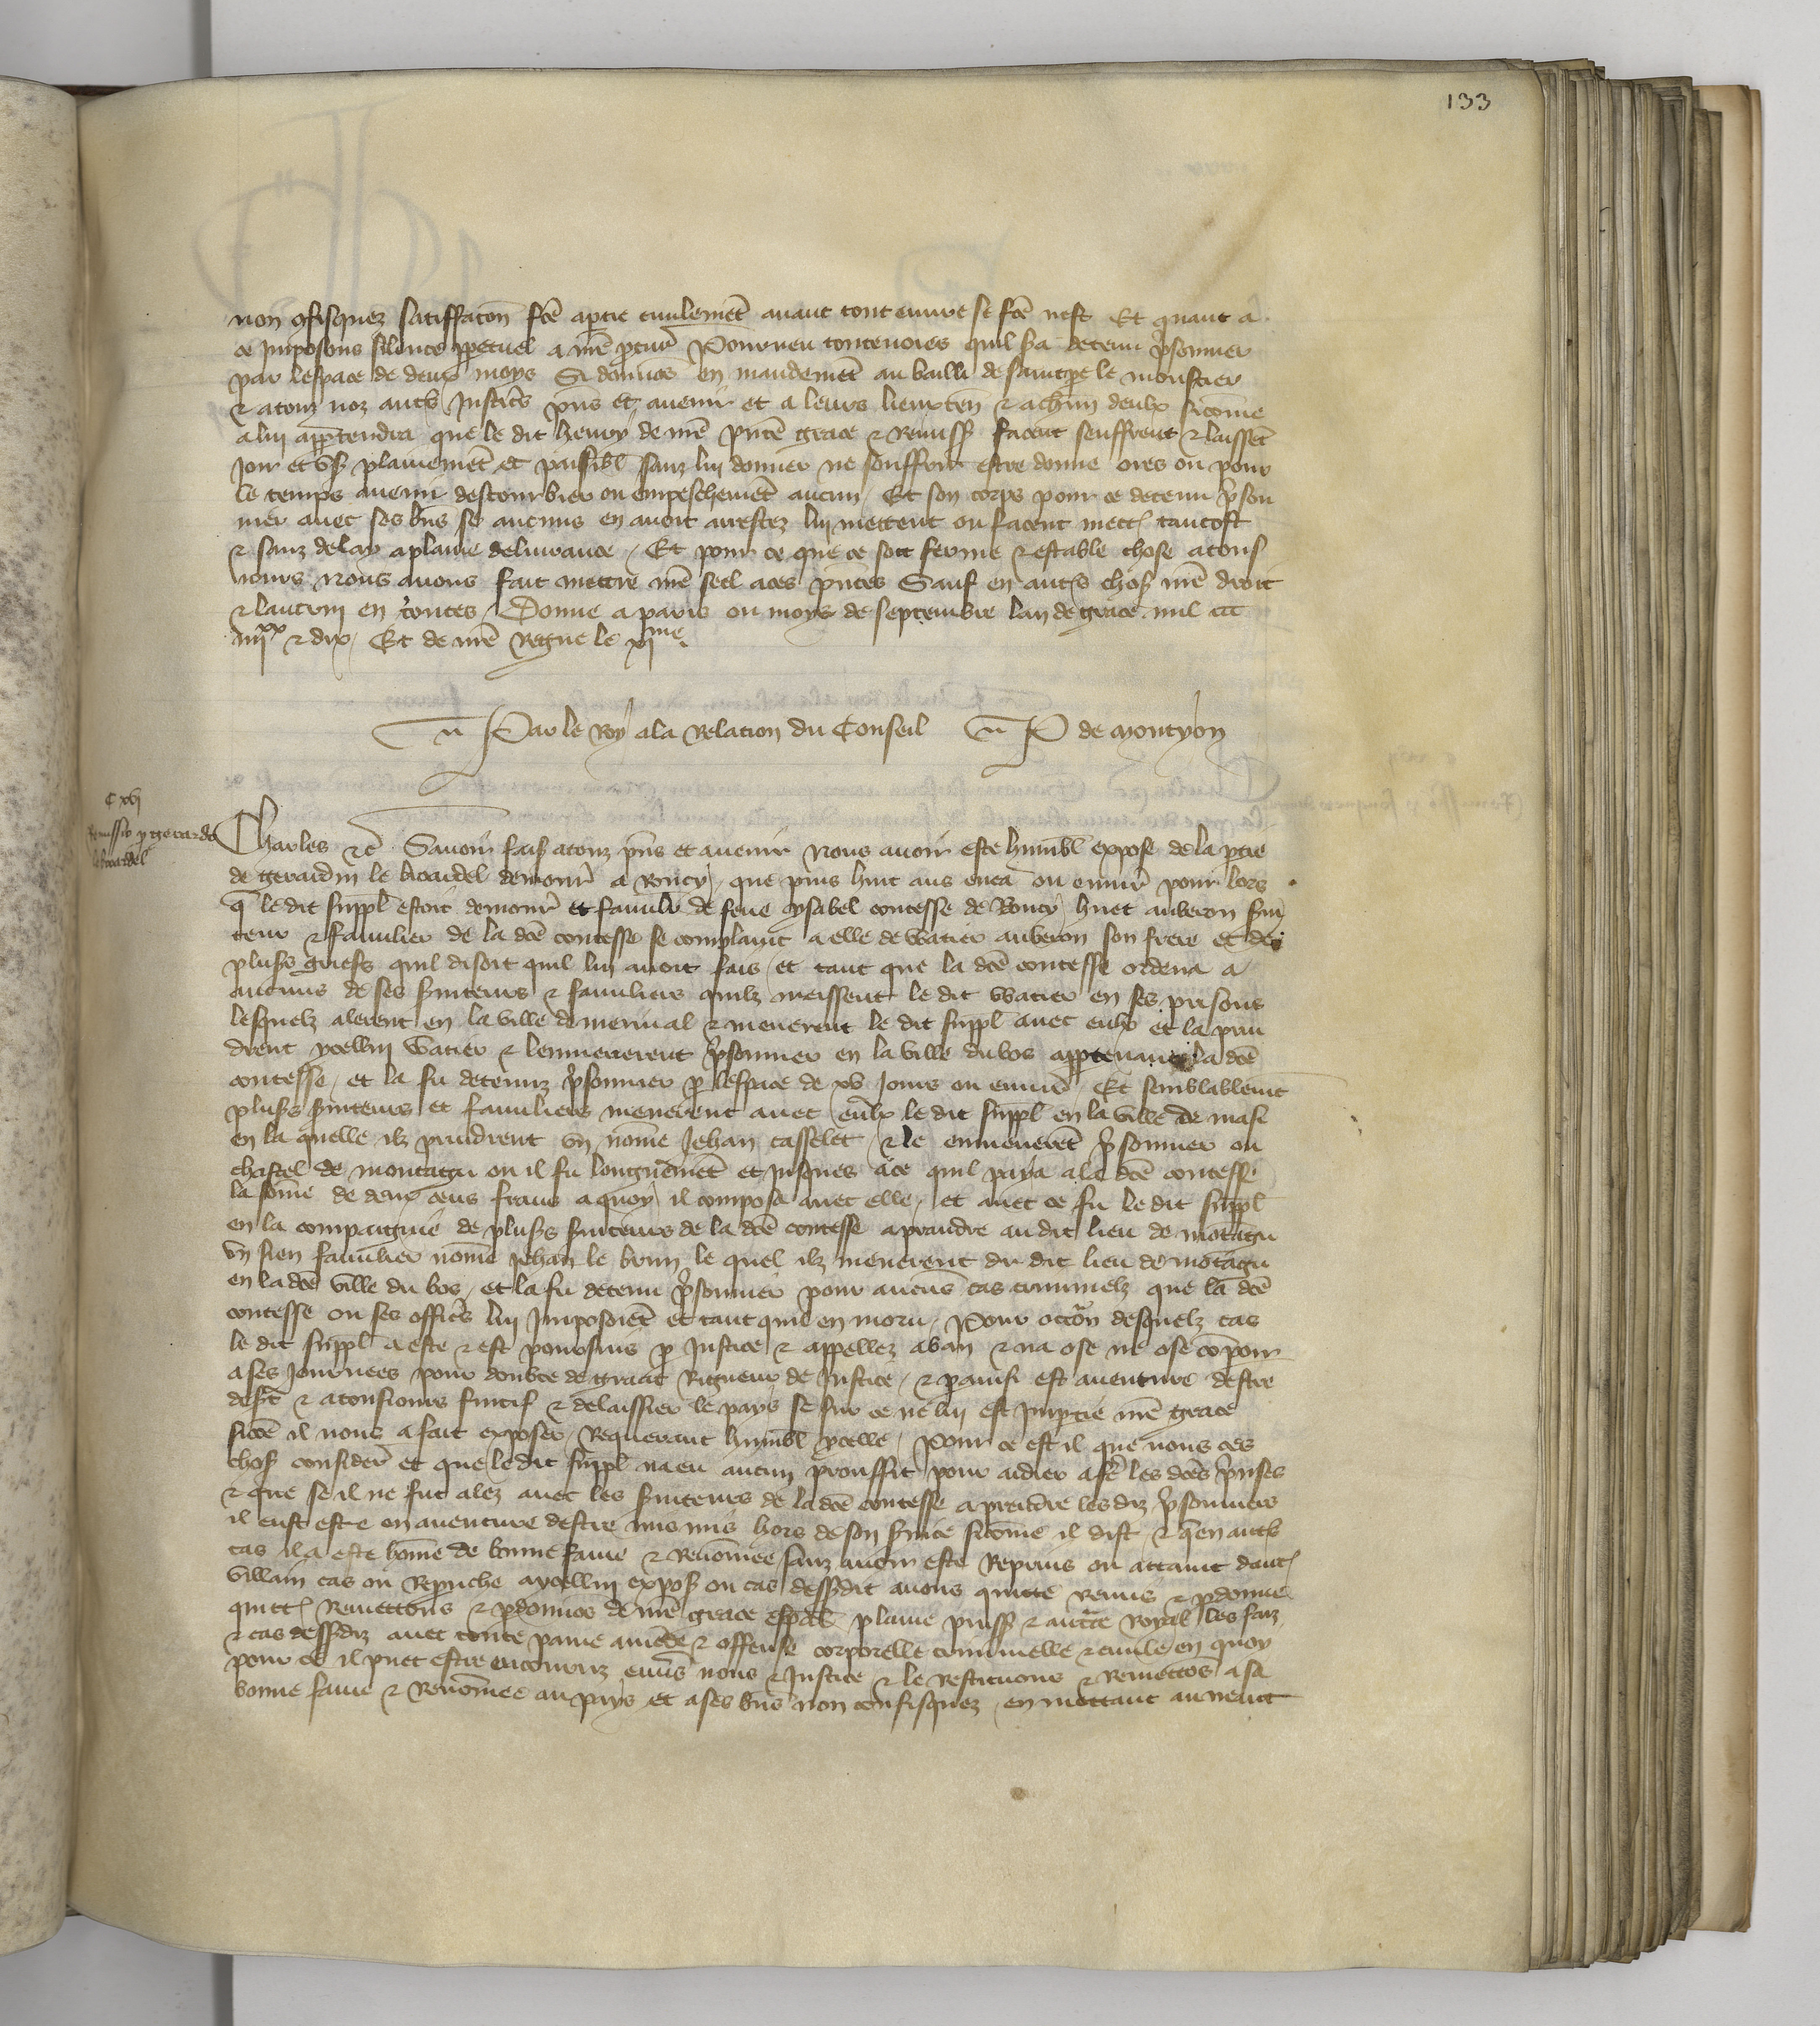 133
non ɔfisquez satiffacon fce a ptie civilemet avant tout euvre se fce nest Et quant a
ce Imposons silence ppetuel a nre pcur Pourveu toutevoies quil sa detenu psonner
par lespace de deux moys Si donnos en mandemet au bailli de saint pe le moustier
& a touz noz autrs Justics pns et avenir et a leurs lieuxten & a chun deulx sicome
a lui apptendra que le dit henry de nre pnte grace & Remiss facent seuffrent & laisset
Joir et us plainemet et paisibl sanz lui donner ne souffrir estre donne ores ou pour
le temps avenir destourbier ou empeschemet aucun / Et son corps pour ce detenu pson
nier avec ses bns se aucuns en avoit arrestez lui mettent ou facent mectr tantost
& sanz delay a plaine delivrance / Et pour ce que ce soit ferme & estable chose a tous
jours Nous avons fait mettre nre seel a ces pntes Sauf en autrs chos nre droit
& lautruy en toutes / Donne a paris ou moys de septembre lan de grace mil ccc
iiijxx & dix / Et de nre Regne le xjme
Par le Roy a la Relation du Conseil P de Montyon
C xvj
Remissio p gerardo
le bacardel
Charles &c Savoir fais a touz pns et avenir Nous avoir este humbl expose de la ptie
de gerardin le bacaudel demour a Roucy, que puis huit ans enca ou envir pour lors
q le dit suppl estoit demour et familr de feue ysabel contesse de Roucy huet auberon svi
teur & familier de la dce contesse se complainit a elle de Watier auberon son frere et des
pluss griefs quil disoit quil lui avoit fais / et tant que la dce contesse ordena a
aucuns de ses sviteurs & familiers quilz meissent le dit Watier en ses prisons
lesquelz alerent en la ville de merival & menerent le dit suppl avec eulx et la prin
drent ycellui Watier & lenmenerent psonnier en la ville du bos apptenant a la dce
contesse / et la fu detenuz psonnier p lespace de xv Jours ou envir / Et semblablemt
pluss sviteurs et familiers menerent avec eulx le dit suppl en la ville de masi
en la quelle ilz prindrent un nome Jehan casselet & le enmeneret psonnier ou
chastel de montagu ou il fu longuemet et Jusques a ce quil paya a la dce contesse
la some de deux cens frans a quoy il composa avec elle / et avec ce fu le dit suppl
en la compaignie de pluss sviteurs de la dce contesse a prandre au dit lieu de motagu
un sien familier nome Jehan le brun le quel ilz menerent du dit lieu de motagu
en la dce ville du bos / et la fu detenu psonnier pour aucus cas criminelz que la dce
contesse ou ses officrs lui Imposoiet et tant quil en moru / Pour occon desquelz cas
le dit suppl a este & est poursuis p Justice & appellez a ban & na ose ne ose copoir
a ses Journees pour doubte de grant Rigueur de Justice / & p ainsi est aventure destre
dest & a tousiours fuitif & delaissier le pays se sur ce ne lui est Imptie nre grace
sicoe il nous a fait exposer / Requerant humbl ycelle / Pour ce est il que nous ces
chos consider et que le dit suppl na eu aucun prouffit pour aidier a fe les dces prises
& que se il ne fut alez avec les sviteurs de la dce contesse a prendre les diz psonniers
il eust este en aventure destre mis hors de son svice sicome il dist & qen autrs
cas il a este home de bonne fame & Renomee sanz avoir este Reprins ou attaint dautr
villain cas ou Reprache a ycellui expos ou cas dessdit avons quitte remis & pdonne
quittr Remettons & pdonnos de nre grace espal plaine puiss & auctte Royal les faiz
& cas dessdiz avec toute paine amede & offense corporelle criminelle & civile en quoy
pour ce il puet estre encouruz envs nous & Justice & le Restituons & Remettos a sa
bonne fame & Renomee au pays et a ses bns non confisquez / en mettant au neant